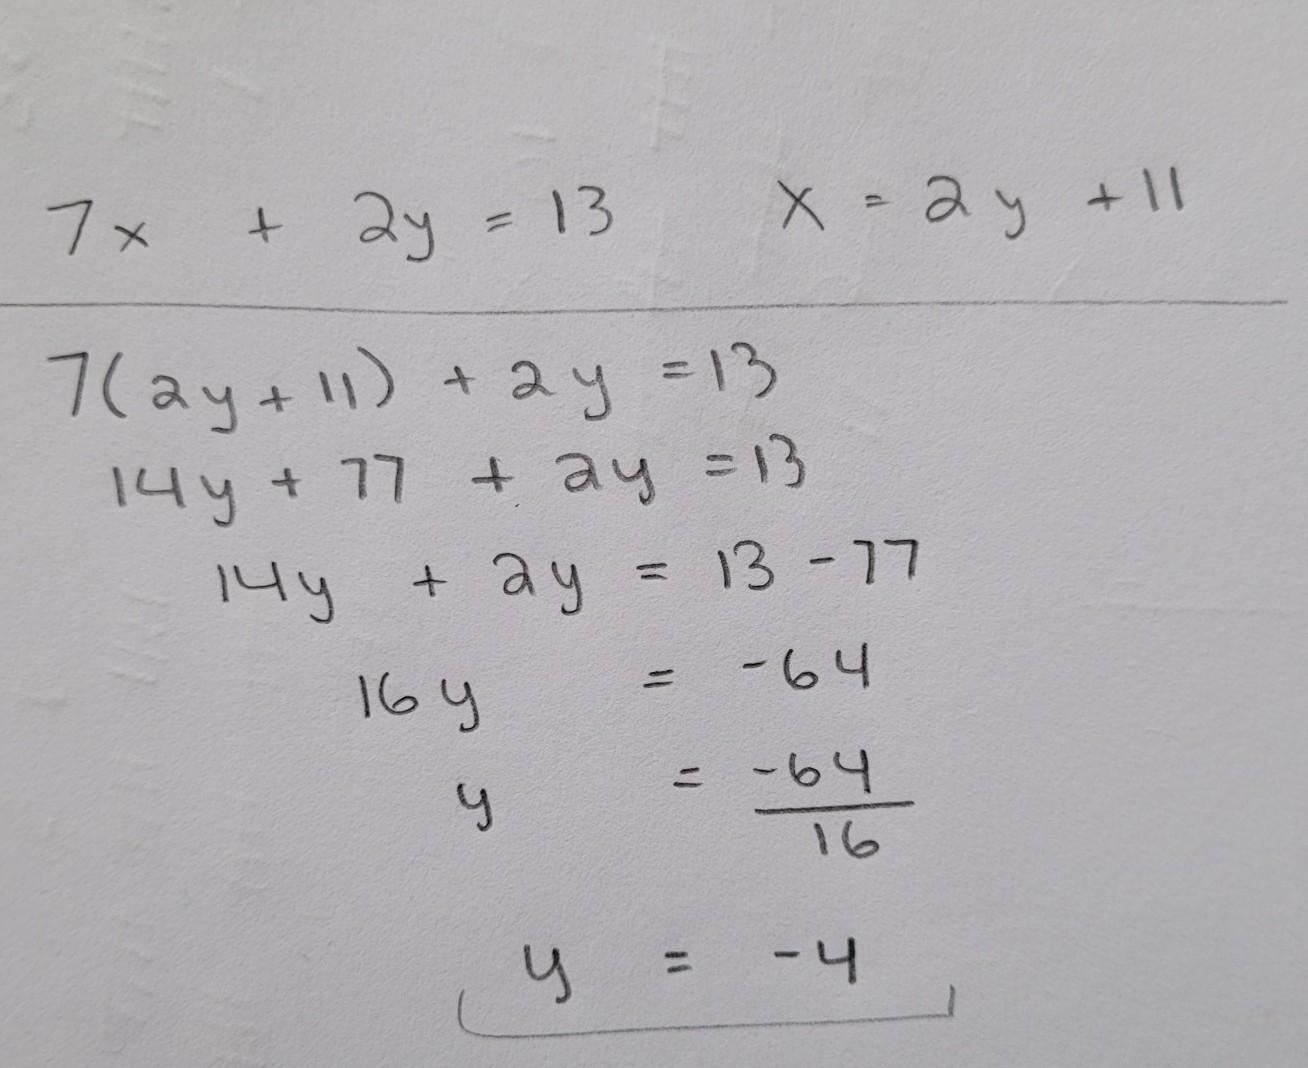 7x + 2y = 13    x = 2y + 11
7(2y + 11) + 2y = 13
14y + 77 + 2y = 13
14y + 2y = 13 - 77
16y = -64
y = -64/16
y = -4